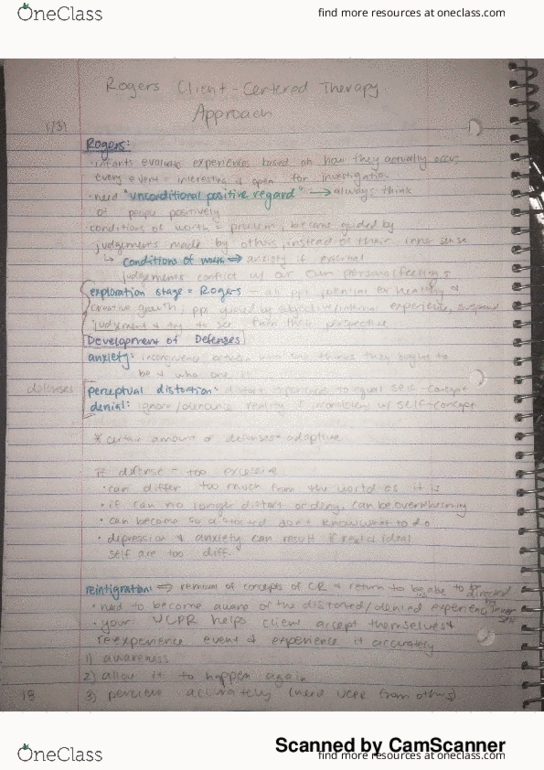 OneClass
find more resources at oneclass.com
Rogers Client-Centered Therapy
Approach
1/31
Rogers:
· infants evaluate experiences based on how they actually occur
every event = interesting & open for investigation
· need "unconditional positive regard" → always think
of people positively
· conditions of worth = problem, become guided by
judgements made by others, instead of their inner sense
↳ conditions of worth → anxiety if external
judgements conflict w/ our own personal feelings
exploration stage = Rogers - all ppl potential for healthy &
creative growth, ppl guided by experience, suspend
judgement & try to see from their perspective
Development of Defenses
anxiety: incongruence between who one thinks they
be & who are
defenses
perceptual distortion: distort experience to equal self-concept
denial: ignore/denounce reality if w/ self-concept
* certain amount of defenses = adaptive
If defense = too
· can differ too much from the world as it is
· if can no longer distort or deny, can be overwhelming
· can become so don't know what to do
· depression & anxiety can result if real & ideal
self are too diff.
reintigration: ⇒ of concepts of CR & return to be able to be directed
inner self
· need to become aware of the distorted/denied experience
· your UCPR helps client accept themselves &
reexperience event & experience it accurately
1) awareness
2) allow it to happen again
18
3) perceive accurately (need UCPR from others)
Scanned by CamScanner
OneClass
find more resources at oneclass.com